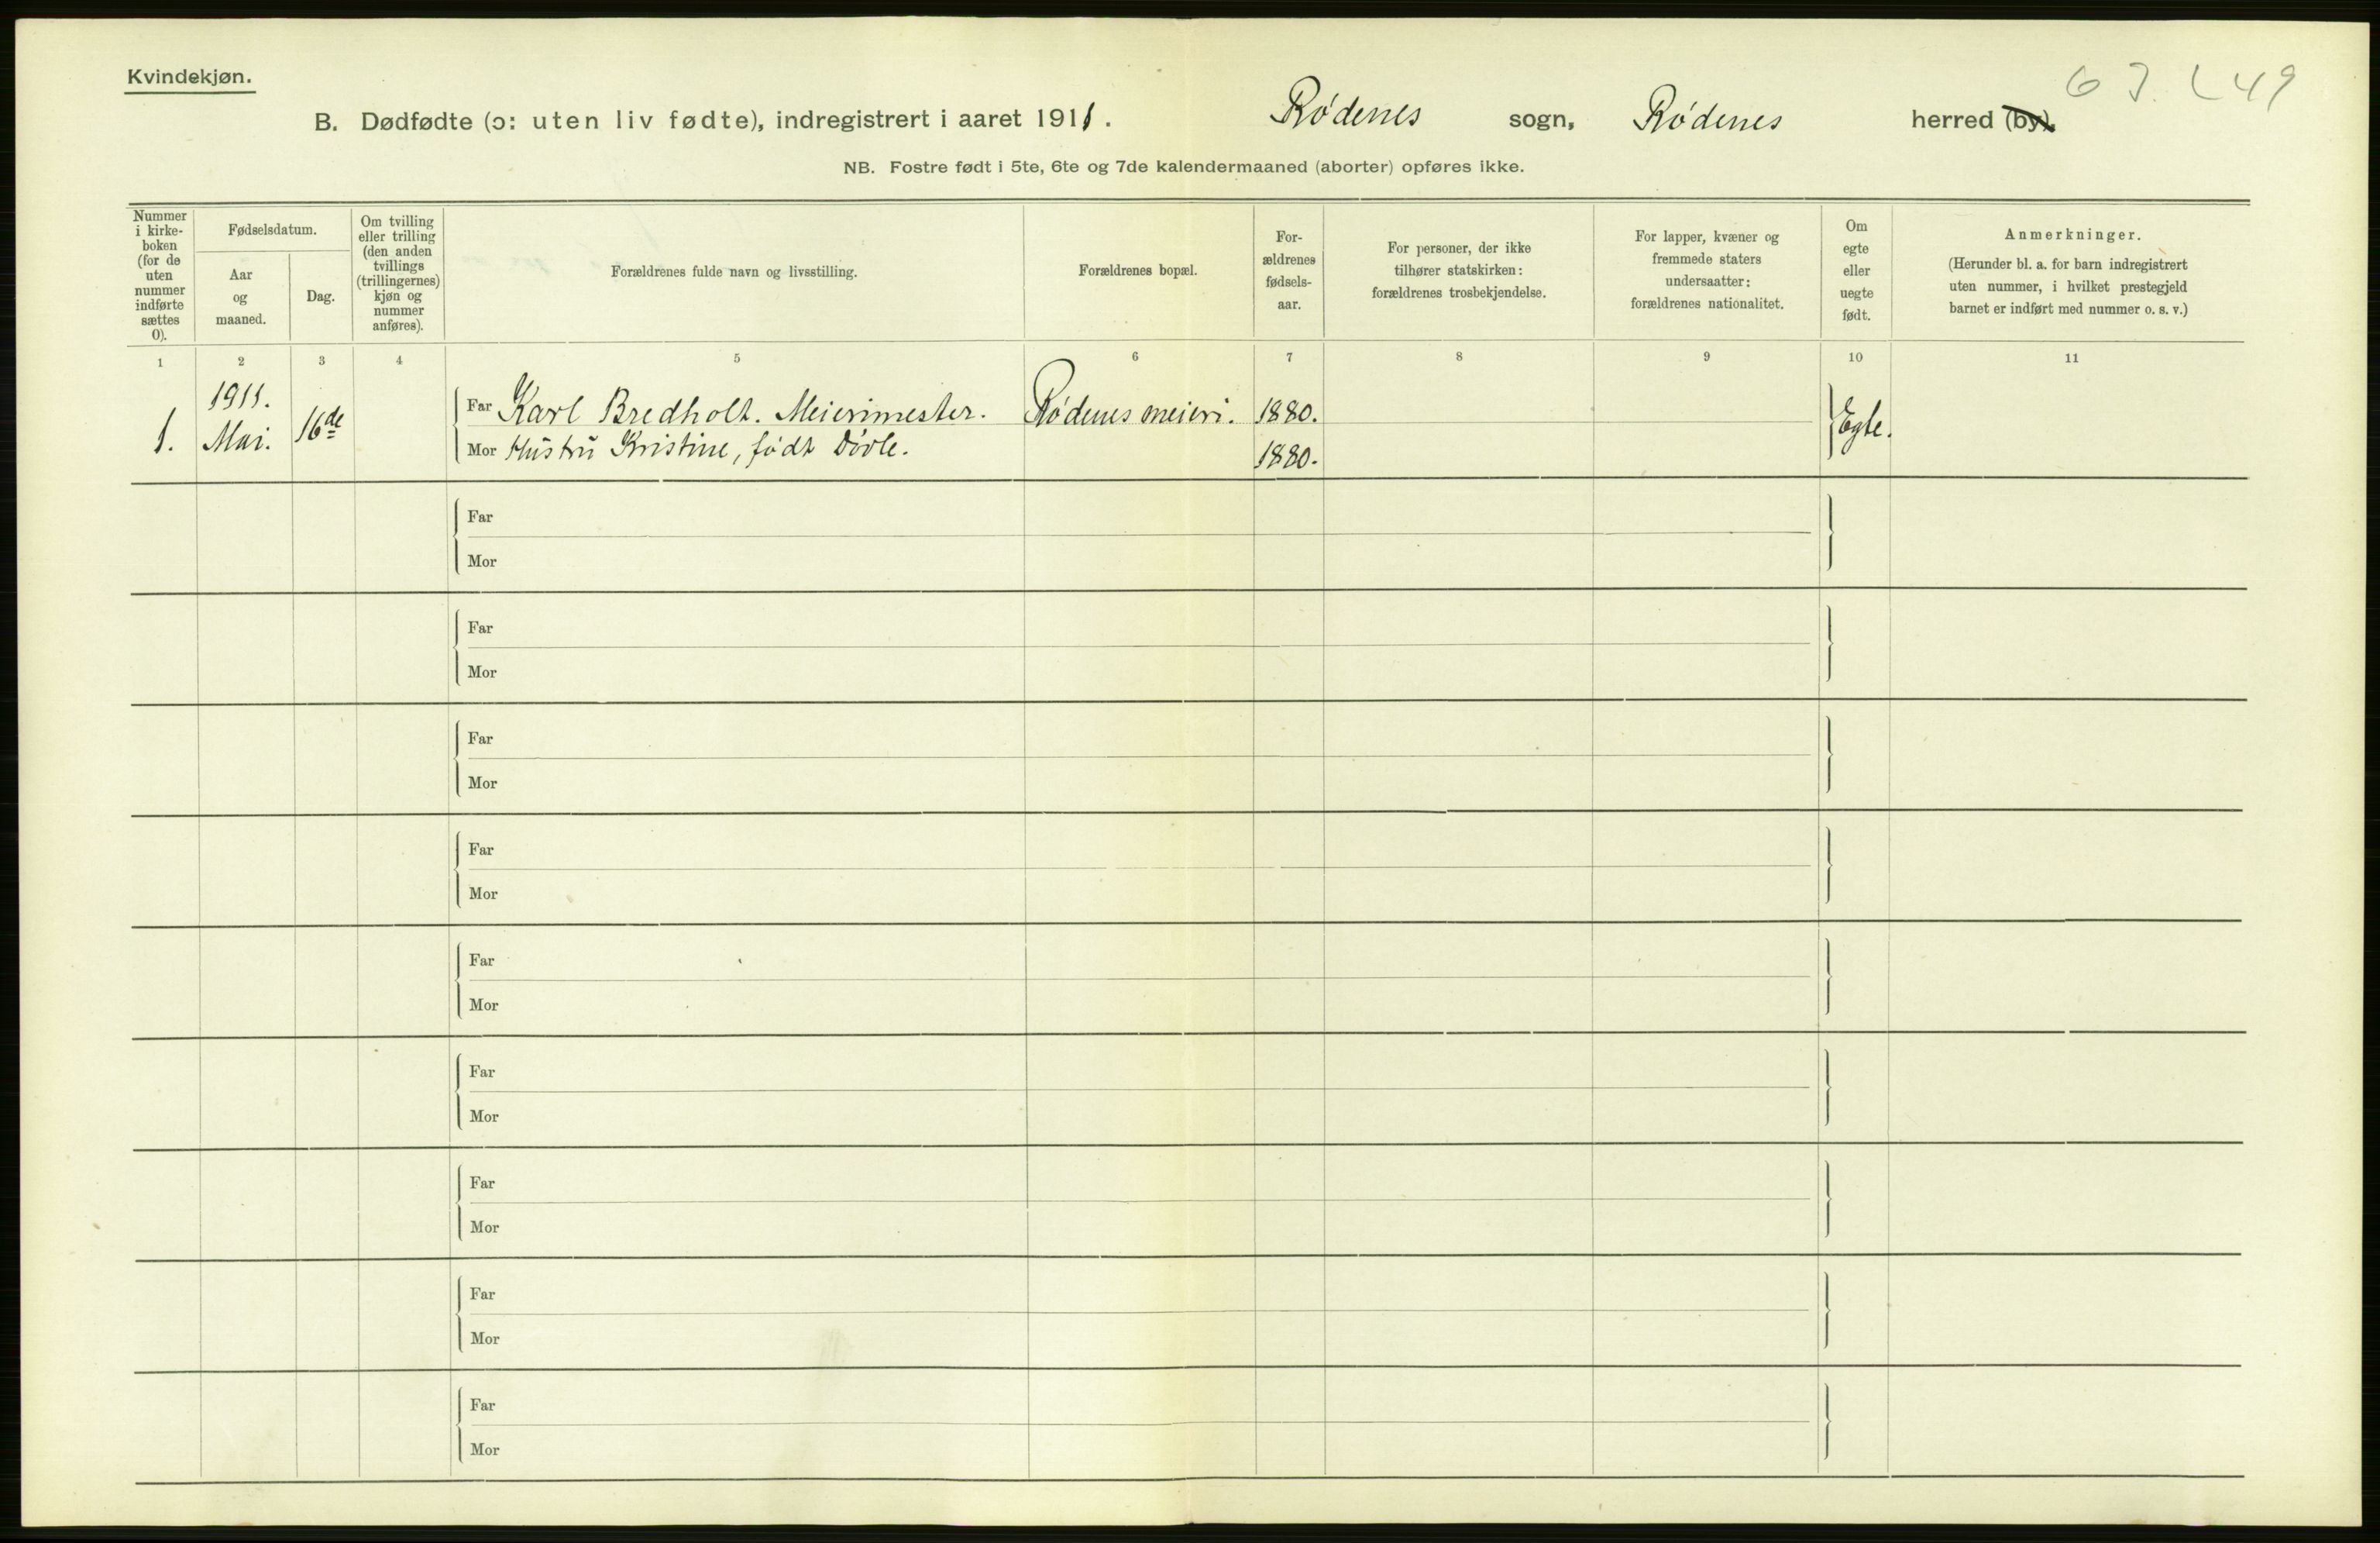 Kvindekjøn.
6 J. L 49
B. Dødfødte (ɔ: uten liv fødte), indregistrert i aaret 1911. Rødenes sogn, Rødenes herred (by).
NB. Fostre født i 5te, 6te og 7de kalendermaaned (aborter) opføres ikke.
Nummer
i kirke-
boken
(for de
uten
nummer
indførte
sættes
0).
Fødselsdatum.
Aar
og
maaned.
Dag.
Om tvilling
eller trilling
(den anden
tvillings
(trillingernes)
kjøn og
nummer
anføres).
Forældrenes fulde navn og livsstilling.
Forældrenes bopæl.
For-
ældrenes
fødsels-
aar.
For personer, der ikke
tilhører statskirken:
forældrenes trosbekjendelse.
For lapper, kvæner og
fremmede staters
undersaatter:
forældrenes nationalitet.
Om
egte
eller
uegte
født.
Anmerkninger.
(Herunder bl. a. for barn indregistrert
uten nummer, i hvilket prestegjeld
barnet er indført med nummer o. s. v.)
1 2 3 4 5 6 7 8 9 10 11
1. 1911. Mai. 16de
Far Karl Bredholt. Meierimester. Rødenes meieri. 1880. Egte.
Mor Hustru Kristine, født Døvle. 1880.
Far
Mor
Far
Mor
Far
Mor
Far
Mor
Far
Mor
Far
Mor
Far
Mor
Far
Mor
Far
Mor